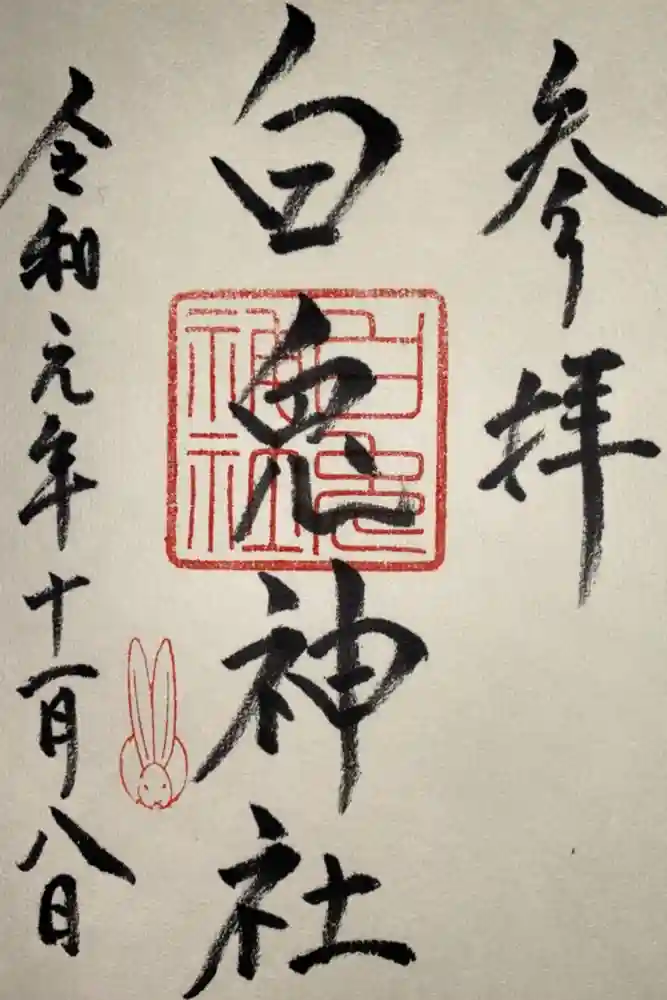 参拝
白兎神社
白兎神社
令和元年十一月八日